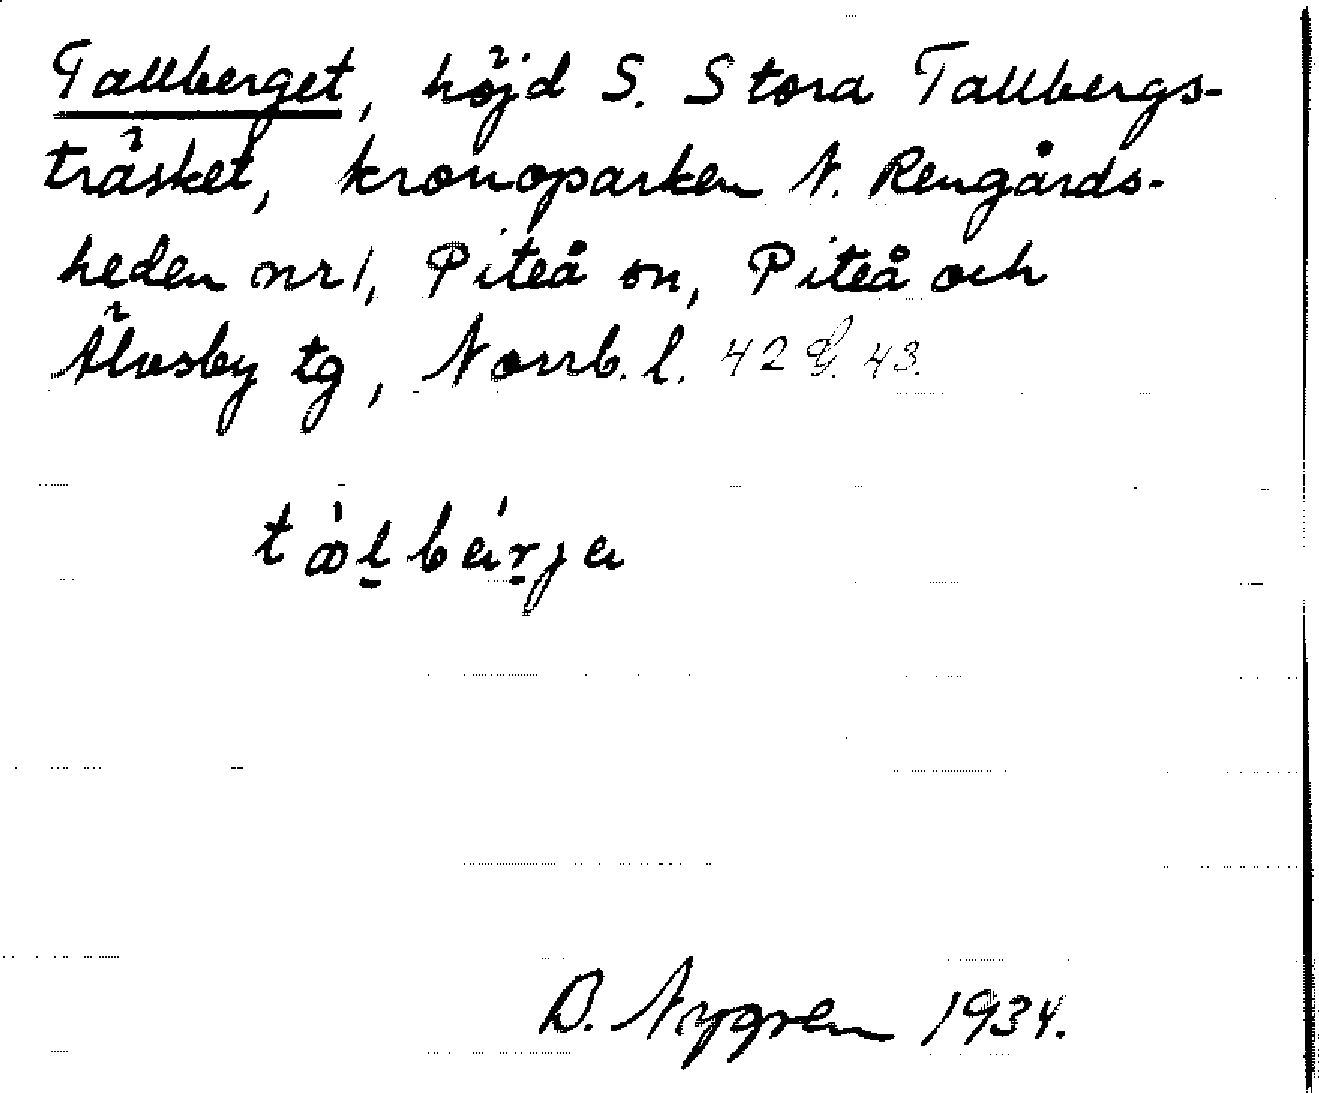 Tallberget, höjd S. Stora Tallbergs-
träsket, kronoparken N. Rengårds-
heden nr 1, Piteå sn, Piteå och
Älvsby tg, Norrb. l. 42 & 43.
D. Nygren 1934.